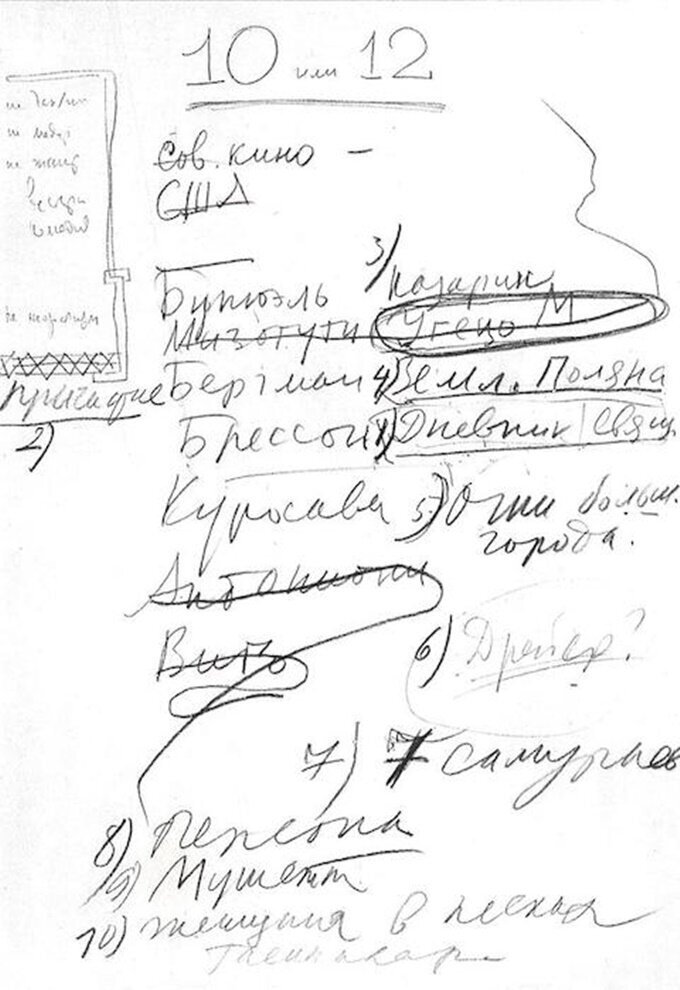 10 или 12
Сов. кино —
США
3) Назарин
Бунюэль
Мизогути Угецу М
Причастие Бергман 4) Земл. Поляна
2) Брессон 1) Дневник свящ.
Куросава 5) Огни больш.
города.
Антониони
Виго
6) Дрейер?
7) 7 самураев
8) Персона
9) Мушетт
10) Женщина в песках
Тешигахара